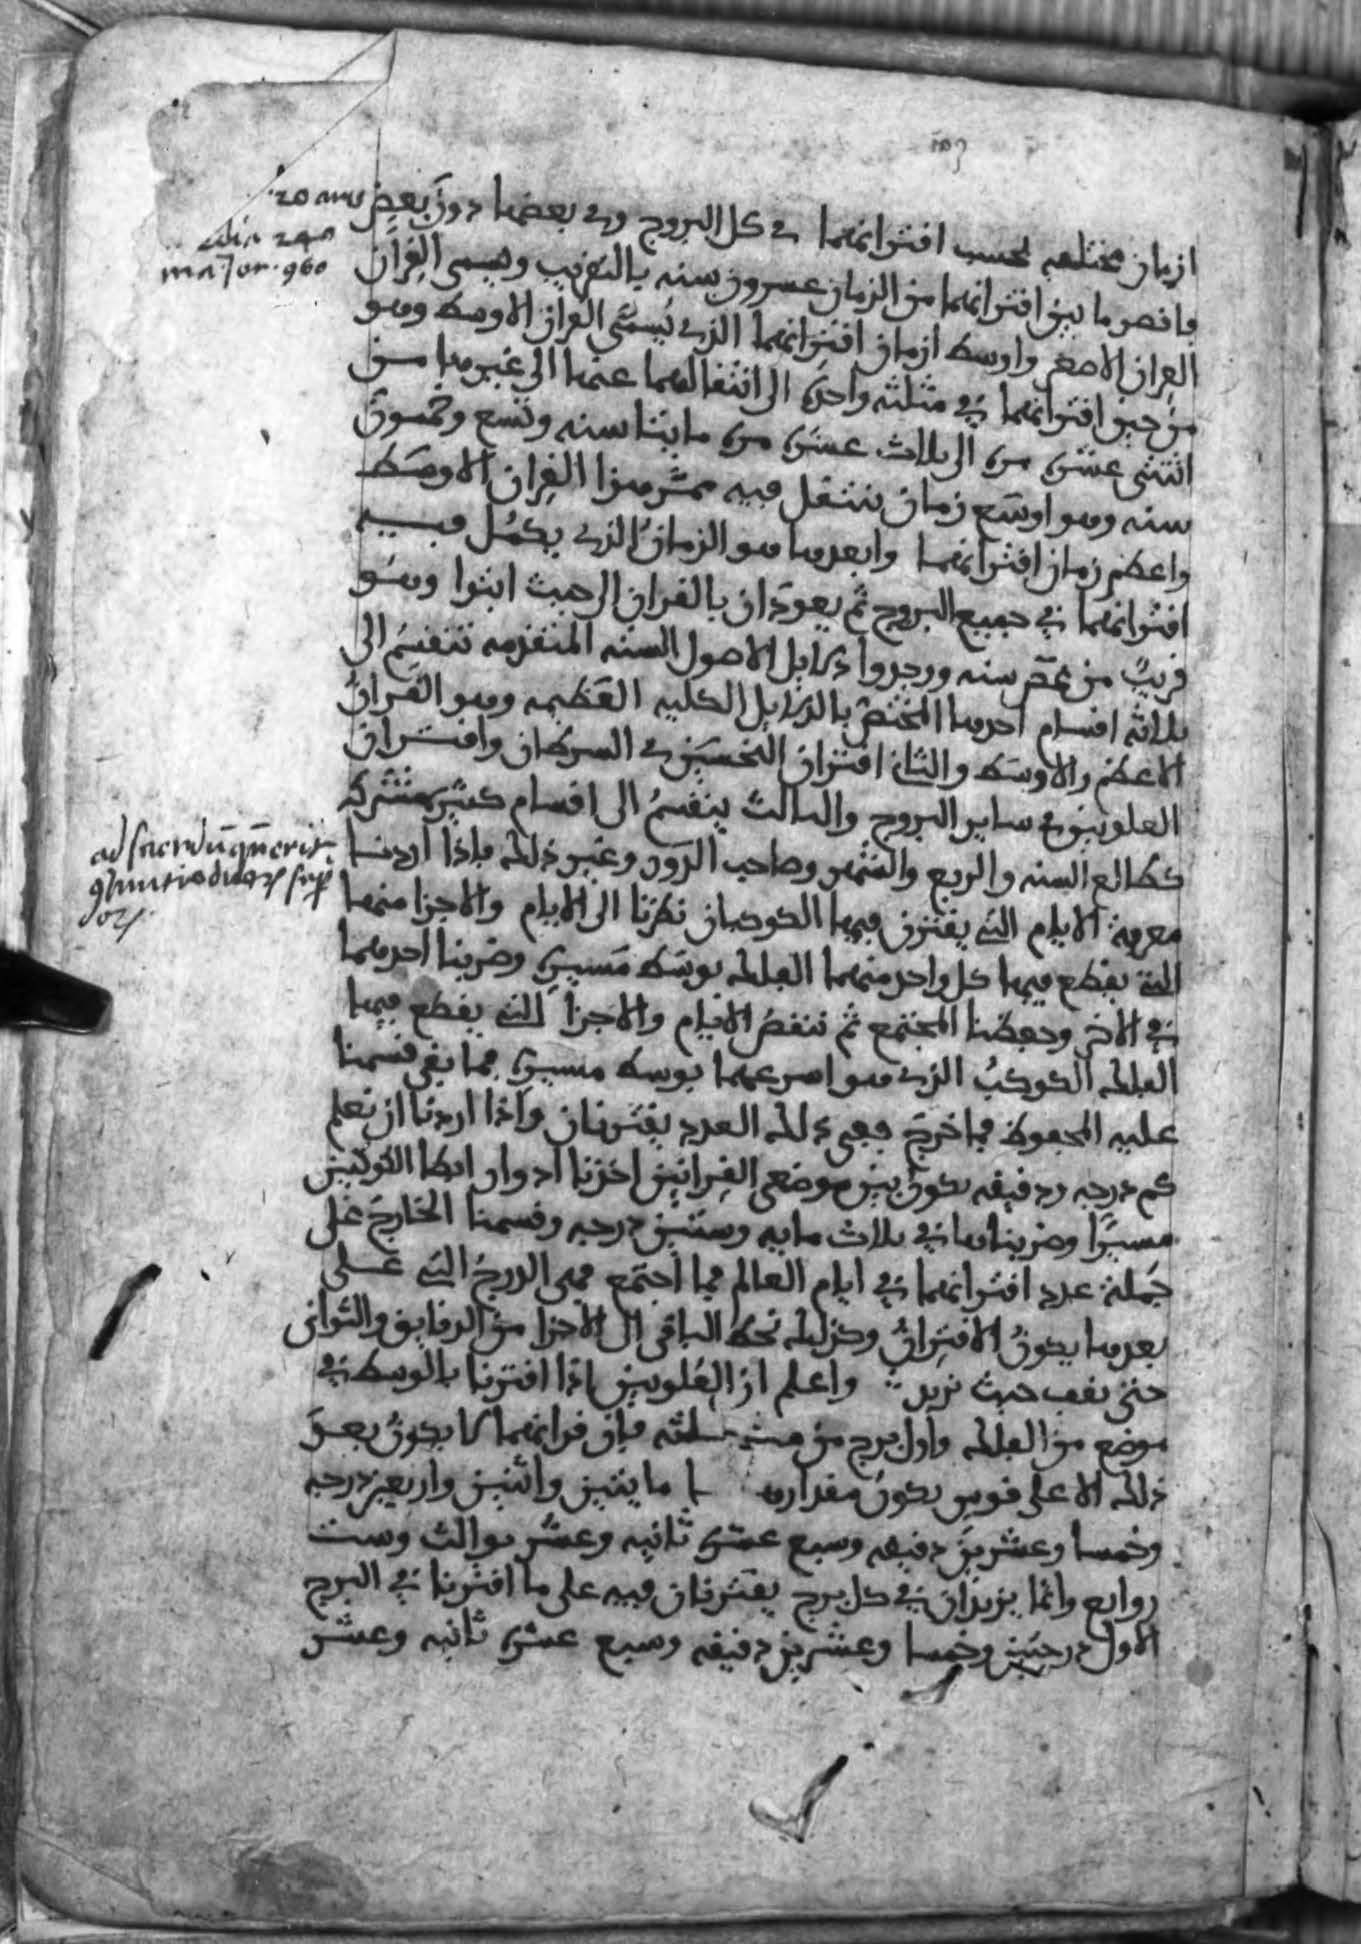 ازمان مختلفه بحسب افترانهما في كل البروج وفي بعضها دون بعض
فاقصر ما بين اقترانهما من الزمان عشرون سنه بالتقريب ويسمى القران
القران الاصغر واوسط ازمان اقترانهما الذي يسمى القران الاوسط وهو
من حين اقترانهما في مثلثه واحدة الى انتقالهما عنها الى غيرها من
اثنتى عشرة مرة الى ثلاث عشرة مرة مايتا سنه وتسع وخمسون
سنه وهو اوسع زمان تنتقل فيه ممر هذا القران الاوسط
واعظم زمان اقترانهما وابعدها هو الزمان الذي يكمل فيه
اقترانهما في جميع البروج ثم يعودان بالقران الى حيث ابتدوا وهو
قريب من سنه ووجدوا دلايل الاصول السنه المتقدمه تنقسم الى
ثلاثه اقسام احدها المختص بالدلايل الكليه العظيمه وهو القران
الاعظم والاوسط والثاني اقتران النحسين في السرطان واقتران
العلويين في ساير البروج والثالث ينقسم الى اقسام كثيرة مشتركه
كطالع السنه والربع والشهر وصاحب الدور وغير ذلك فاذا اردنا
معرفة الايام التي يقترن فيها الكوكبان نظرنا الى الايام والاجزا منهما
التي يقطع فيها كل واحد منهما الفلك بوسط مسيره وضربنا احدهما
في الاخر وحفظنا المجتمع ثم ننقص الايام والاجزا التي يقطع فيها
الفلك الكوكب الذي هو اسرعهما بوسط مسيره فما بقي قسمنا
عليه المحفوظ فما خرج ففي ذلك العدد يقترنان واذا اردنا ان نعلم
كم درجه ودقيقه تكون بين موضعي القرانين اخذنا ادوار ابطا الكوكبين
مسيرا وضربناها في ثلاث مايه وستين درجه وقسمنا الخارج على
جملة عدد اقترانهما في ايام العالم فما اجتمع فهي الدرج التي على
بعدها يكون الاقتران وكذلك نحط الباقي الى الاجزا من الدقايق والثواني
حتى نقف حيث نريد واعلم ان العلويين اذا اقترنا بالوسط في
موضع من الفلك واول برج من مثلثه فان قرانهما كما يكون بعد
ذلك الا على قوس يكون مقداره مايتين واثنين واربعين درجه
وخمسا وعشرين دقيقه وسبع عشرة ثانيه وعشر ثوالث وست
روابع وانما يزيدان في كل برج يقترنان فيه على ما اقترنا في البرج
الاول درجتين وخمسا وعشرين دقيقه وسبع عشرة ثانيه وعشر
major 960